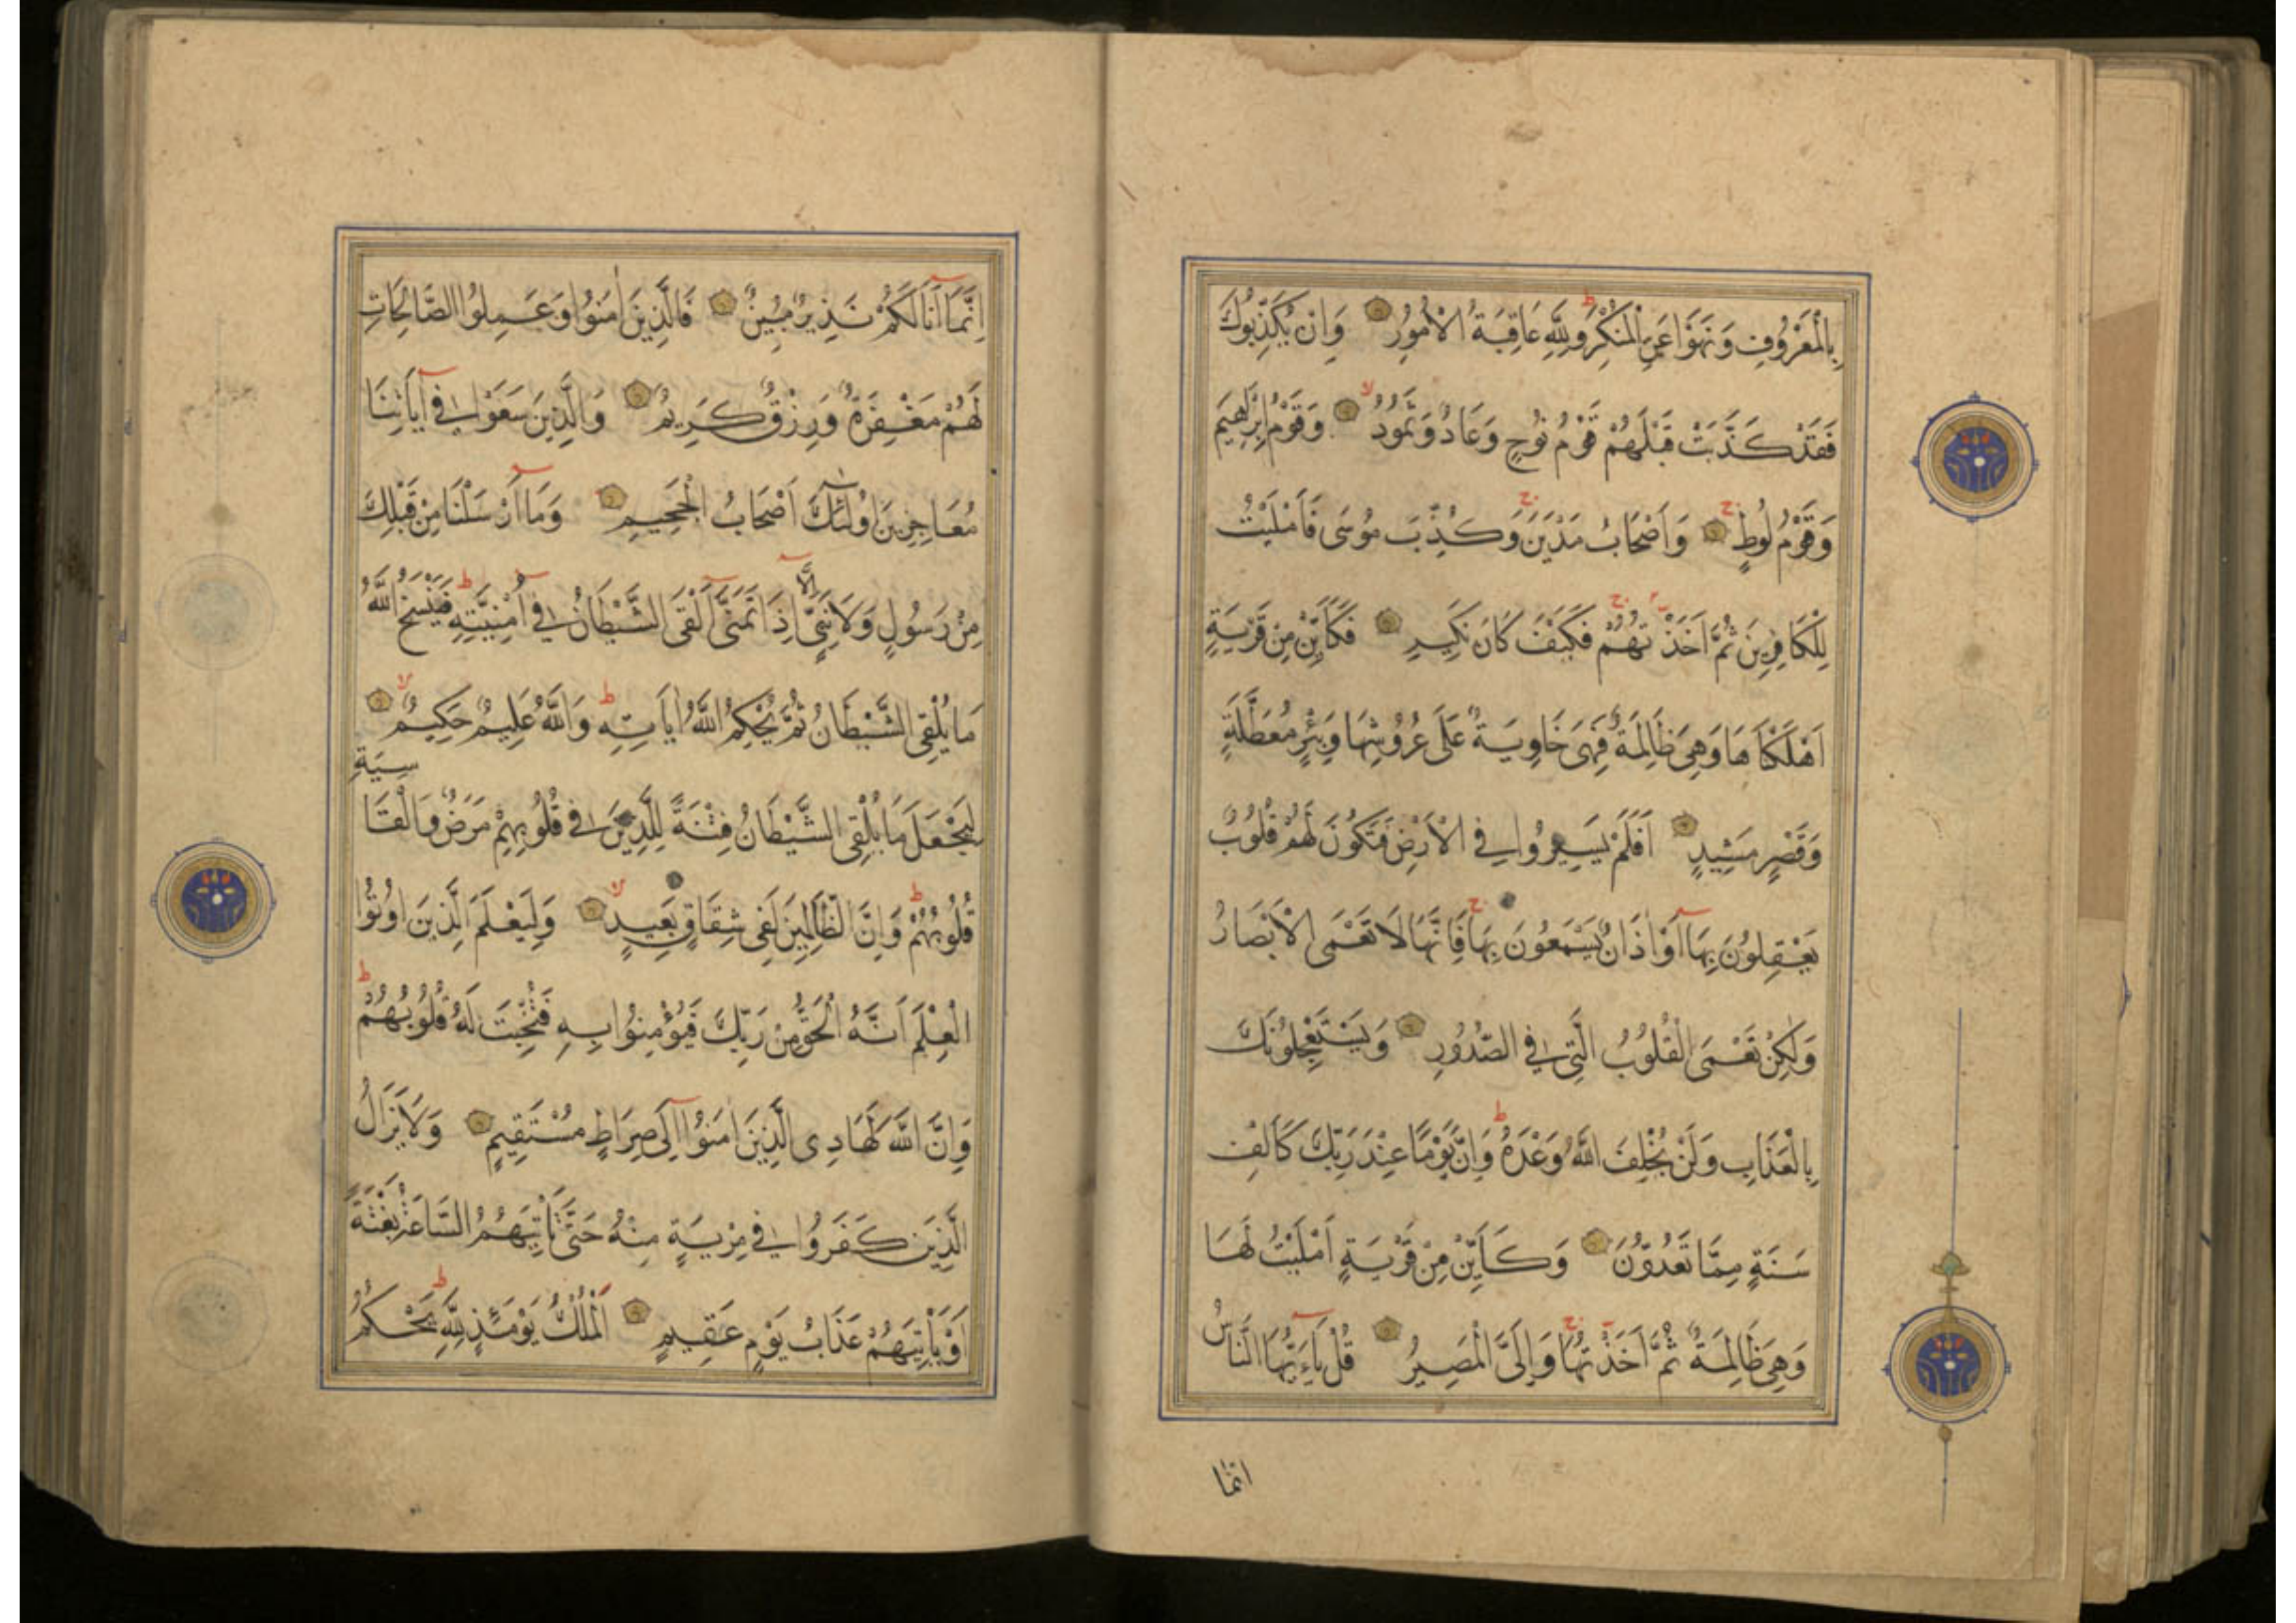 بِالْمَعْرُوفِ وَنَهَوْا عَنِ الْمُنْكَرِ وَلِلّٰهِ عَاقِبَةُ الْاُمُورِ وَاِنْ يُكَذِّبُوكَ
فَقَدْ كَذَّبَتْ قَبْلَهُمْ قَوْمُ نُوحٍ وَعَادٌ وَثَمُودُ وَقَوْمُ اِبْرٰهِيمَ
وَقَوْمُ لُوطٍ وَاَصْحَابُ مَدْيَنَ وَكُذِّبَ مُوسَى فَاَمْلَيْتُ
لِلْكَافِرِينَ ثُمَّ اَخَذْتُهُمْ فَكَيْفَ كَانَ نَكِيرِ فَكَاَيِّنْ مِنْ قَرْيَةٍ
اَهْلَكْنَاهَا وَهِيَ ظَالِمَةٌ فَهِيَ خَاوِيَةٌ عَلَى عُرُوشِهَا وَبِئْرٍ مُعَطَّلَةٍ
وَقَصْرٍ مَشِيدٍ اَفَلَمْ يَسِيرُوا فِي الْاَرْضِ فَتَكُونَ لَهُمْ قُلُوبٌ
يَعْقِلُونَ بِهَا اَوْ اٰذَانٌ يَسْمَعُونَ بِهَا فَاِنَّهَا لَا تَعْمَى الْاَبْصَارُ
وَلٰكِنْ تَعْمَى الْقُلُوبُ الَّتِي فِي الصُّدُورِ وَيَسْتَعْجِلُونَكَ
بِالْعَذَابِ وَلَنْ يُخْلِفَ اللّٰهُ وَعْدَهُ وَاِنَّ يَوْمًا عِنْدَ رَبِّكَ كَاَلْفِ
سَنَةٍ مِمَّا تَعُدُّونَ وَكَاَيِّنْ مِنْ قَرْيَةٍ اَمْلَيْتُ لَهَا
وَهِيَ ظَالِمَةٌ ثُمَّ اَخَذْتُهَا وَاِلَيَّ الْمَصِيرُ قُلْ يَاءَيُّهَا النَّاسُ
انما
اِنَّمَا اَنَا لَكُمْ نَذِيرٌ مُبِينٌ فَالَّذِينَ اٰمَنُوا وَعَمِلُوا الصَّالِحَاتِ
لَهُمْ مَغْفِرَةٌ وَرِزْقٌ كَرِيمٌ وَالَّذِينَ سَعَوْا فِي اٰيَاتِنَا
مُعَاجِزِينَ اُولٰئِكَ اَصْحَابُ الْجَحِيمِ وَمَا اَرْسَلْنَا مِنْ قَبْلِكَ
مِنْ رَسُولٍ وَلَا نَبِيٍّ اِلَّا اِذَا تَمَنَّى اَلْقَى الشَّيْطَانُ فِي اُمْنِيَّتِهِ فَيَنْسَخُ اللّٰهُ
مَا يُلْقِي الشَّيْطَانُ ثُمَّ يُحْكِمُ اللّٰهُ اٰيَاتِهِ وَاللّٰهُ عَلِيمٌ حَكِيمٌ
لِيَجْعَلَ مَا يُلْقِي الشَّيْطَانُ فِتْنَةً لِلَّذِينَ فِي قُلُوبِهِمْ مَرَضٌ وَالْقَاسِيَةِ
قُلُوبُهُمْ وَاِنَّ الظَّالِمِينَ لَفِي شِقَاقٍ بَعِيدٍ وَلِيَعْلَمَ الَّذِينَ اُوتُوا
الْعِلْمَ اَنَّهُ الْحَقُّ مِنْ رَبِّكَ فَيُؤْمِنُوا بِهِ فَتُخْبِتَ لَهُ قُلُوبُهُمْ
وَاِنَّ اللّٰهَ لَهَادِي الَّذِينَ اٰمَنُوا اِلَى صِرَاطٍ مُسْتَقِيمٍ وَلَا يَزَالُ
الَّذِينَ كَفَرُوا فِي مِرْيَةٍ مِنْهُ حَتَّى تَاْتِيَهُمُ السَّاعَةُ بَغْتَةً
اَوْ يَاْتِيَهُمْ عَذَابُ يَوْمٍ عَقِيمٍ اَلْمُلْكُ يَوْمَئِذٍ لِلّٰهِ يَحْكُمُ